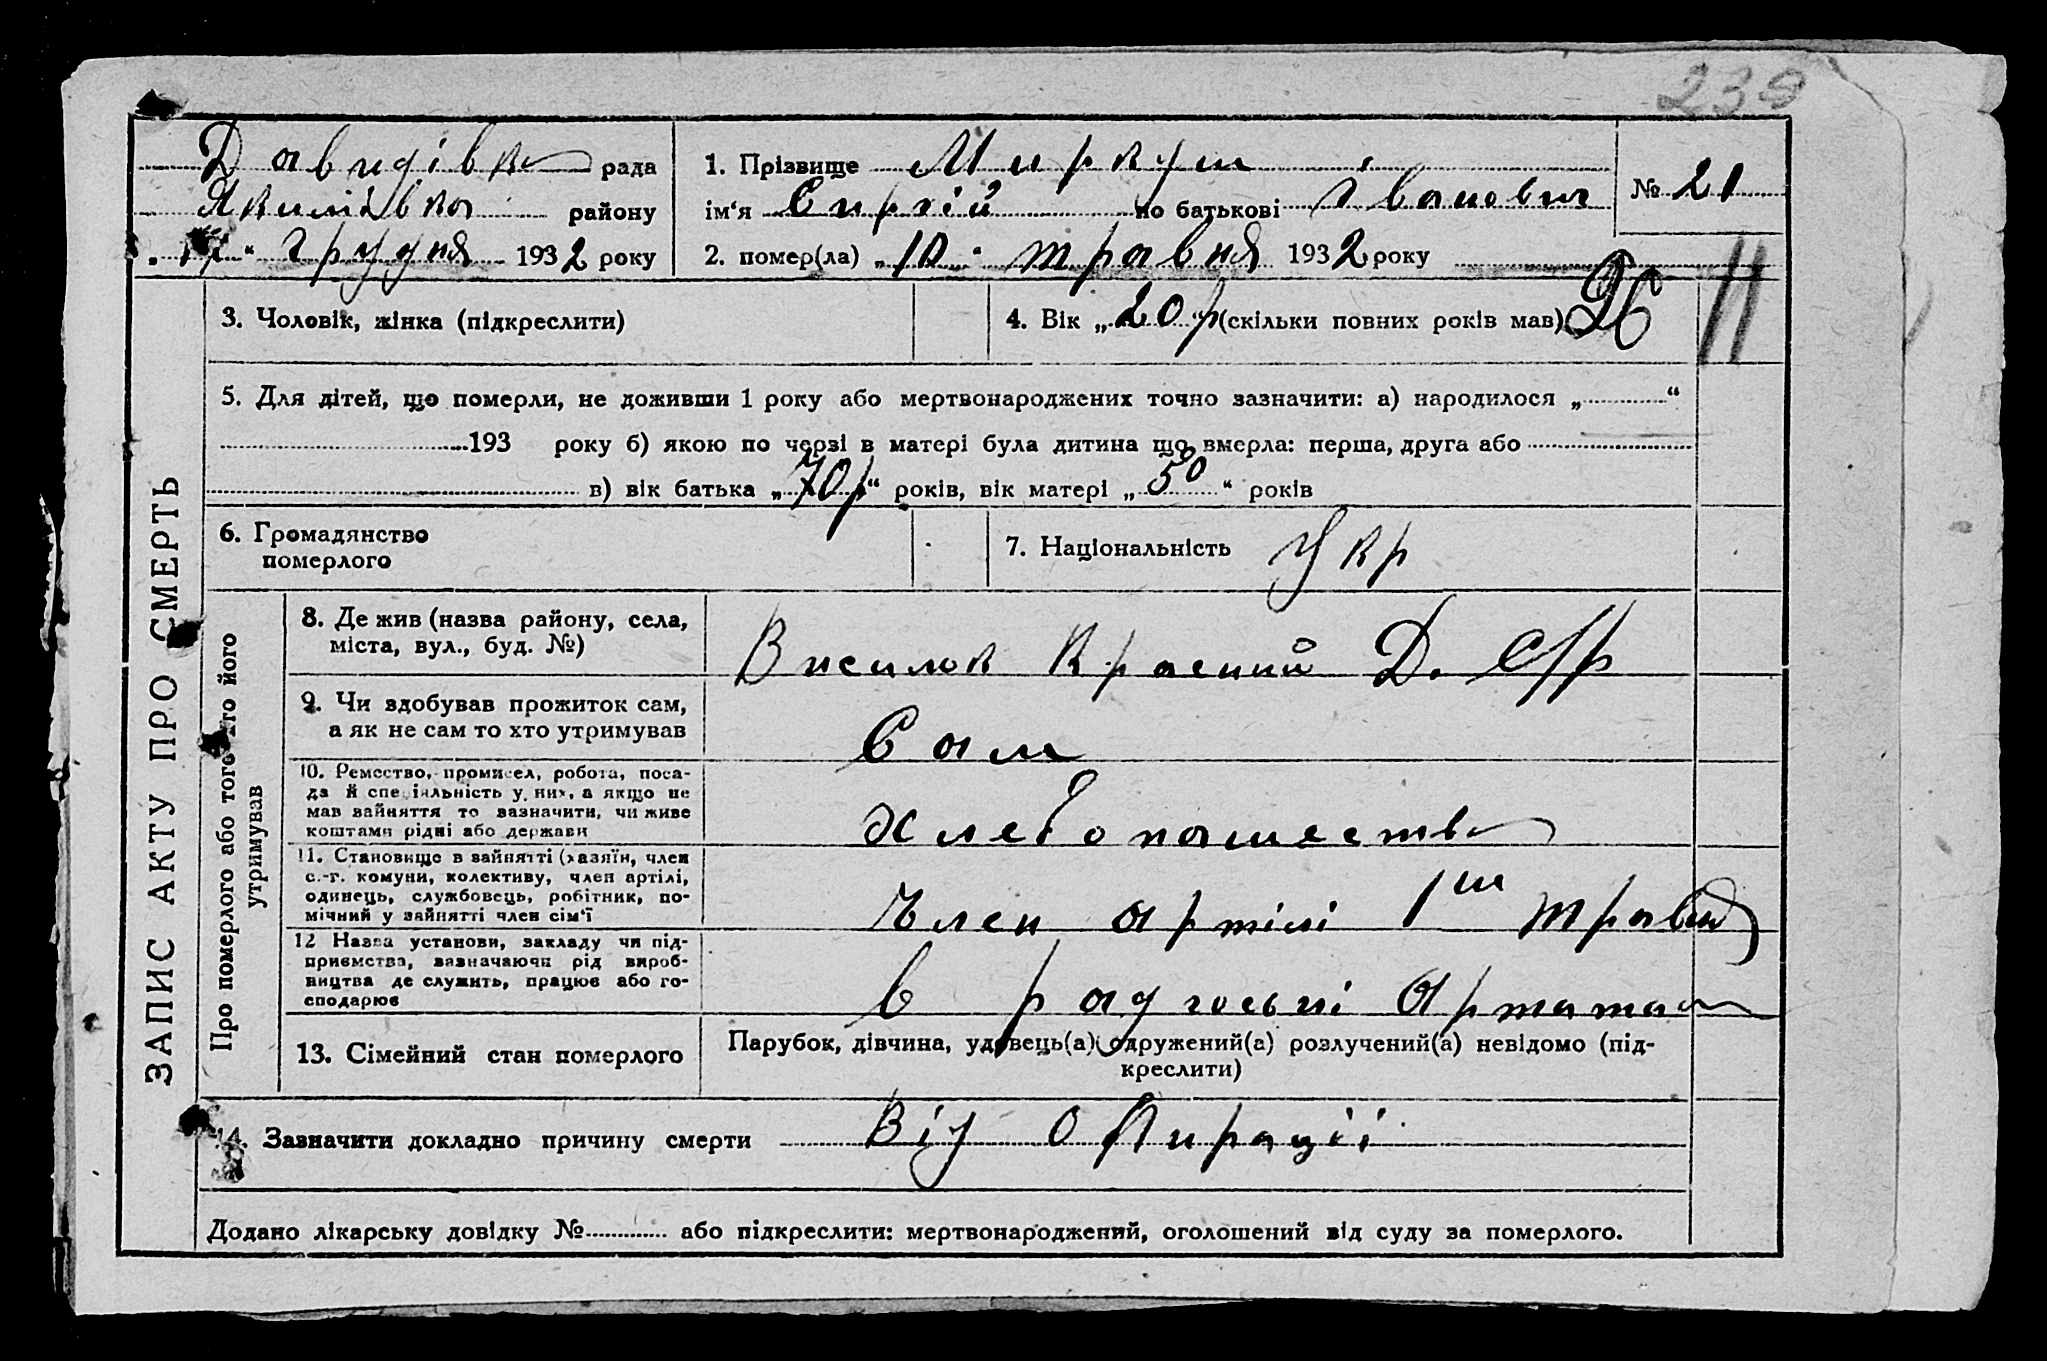 239
Давидівка рада
Якимівка району
"17" грудня 1932 року
1. Прізвище Миркуш
ім'я Сиргій по батькові Іванович
2. помер(ла) „10" травня 1932 року
№ 21
3. Чоловік, жінка (підкреслити)
4. Вік „20 р (скільки повних років мав)
11
5. Для дітей, що померли, не доживши 1 року або мертвонароджених точно зазначити: а) народилося „ “
193 року б) якою по черзі в матері була дитина що вмерла: перша, друга або
в) вік батька „70р“ років, вік матері „50“ років
6. Громадянство
померлого
7. Національність Укр
ЗАПИС АКТУ ПРО СМЕРТЬ
Про померлого або того хто його
утримував
8. Де жив (назва району, села,
міста, вул., буд. №)
Висилок Красний Д. С/р
9. Чи здобував прожиток сам,
а як не сам то хто утримував
Сам
10. Ремество, промисел, робота, поса-
да й спеціяльність у них, а якщо не
мав зайняття то зазначити, чи живе
коштами рідні або держави
Хлебопашество
11. Становище в зайнятті (хазяїн, член
с.-г. комуни, колективу, член артілі,
одинець, службовець, робітник, по-
мічний у зайнятті член сім'ї
Член артілі 1ш травня
12 Назва установи, закладу чи під-
приємства, зазначаючи рід вироб-
ництва де служить, працює або го-
сподарює
в радгоспі
13. Сімейний стан померлого
Парубок, дівчина, удовець(а) одружений(а) розлучений(а) невідомо (під-
креслити)
14. Зазначити докладно причину смерти Від опирації
Додано лікарську довідку № або підкреслити: мертвонароджений, оголошений від суду за померлого.